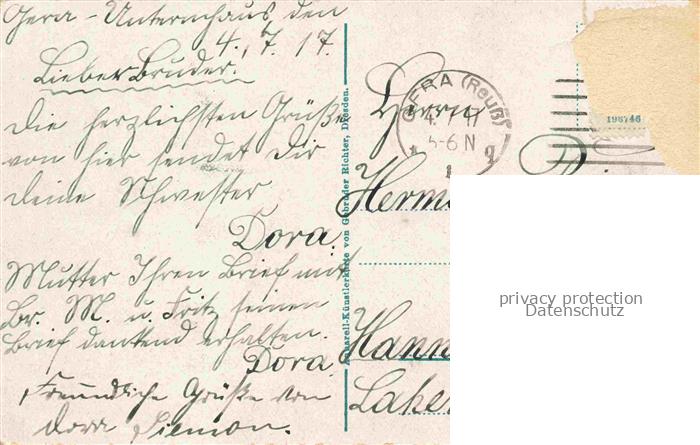 Gera-Untermhaus, den
4. 7. 17.
Lieber Bruder.
Die herzlichsten Grüße
von hier sendet Dir
Deine Schwester
Dora.
Mutter Ihren Brief mit
Br. M. u. Fritz seinen
Brief dankend erhalten.
Dora.
Freundliche Grüße von
Dora Siemon.
Aquarell-Künstlerkarte von Gebrüder Richter, Dresden.
GERA (Reuß)
4.7.17
5-6 N
196746
Herrn
Herm
Hann
privacy protection
Datenschutz